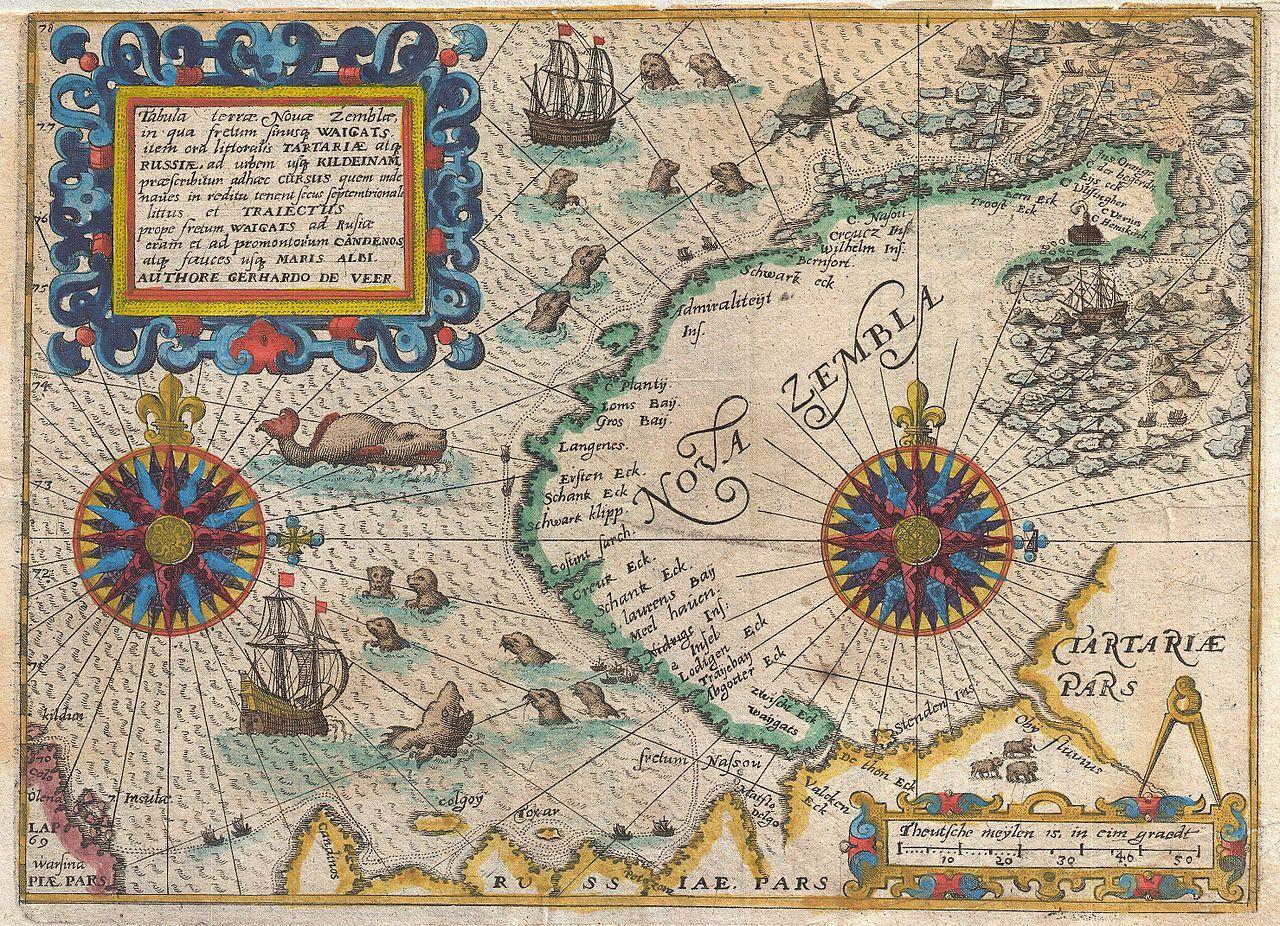 Tabula terræ Novæ Zemblæ,
in qua fretum sinusq WAIGATS
item ora littoralis TARTARIÆ atq
RUSSIÆ ad urbem usq KILDEINAM
præscribitur adhæc CURSUS quem inde
naues in reditu tenent secus septemtrionale
littus et TRAIECTUS
prope fretum WAIGATS ad Rusiæ
oram et ad promontorium CANDENOS
atq fauces usq MARIS ALBI.
AUTHORE GERHARDO DE VEER.
78
77
76
75
74
73
72
71
69
NOVA ZEMBLA
Eys eck
C. Nasou.
Creucz Ins
Wilhelm Ins.
Bernfort.
Schwart eck
Troost Eck
Admiraliteijt
Ins.
C Plantij.
Loms Baij.
Gros Baij
Langenes.
Ersten Eck.
Schank Eck
Schwart klipp.
Costint sarch.
Creutz Eck.
Schank Eck.
S laurens Baij
Meel hauen.
Nidrige Ins.
2 Insel
Lodigen Eck
Traijebay
Abgotter Eck
Zwische Eck
Waygats
fretum Nassou
Stenden Ins
De thon Eck
Valcken
Eck
TARTARIÆ
PARS
Oby fluuius
kildin
7 Insulæ
Olena
LAP
Warsina
PIÆ PARS
Candinos
Colgoy
Toxar
RUSSIAE. PARS
Theutsche meylen 15. in eim graedt
10 20 30 40 50